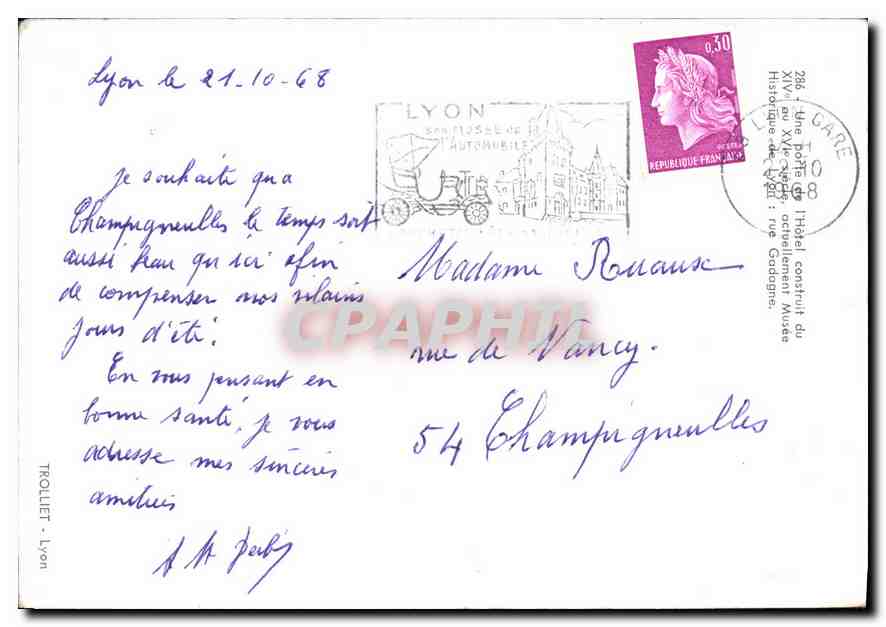 Lyon le 21-10-68
Je souhaite qu'a
Champigneulles le temps soit
aussi beau qu'ici afin
de compenser nos vilains
jours d'été.
En vous pensant en
bonne santé, je vous
adresse mes sincères
amitiés
LYON
son MUSÉE de
l'AUTOMOBILE
0,30
REPUBLIQUE FRANÇAISE
GARE
10
1968
286 - Une porte de l'Hôtel construit du
XIVe au XVIe siècle, actuellement Musée
Historique de Lyon : rue Gadagne.
Madame Ruaux
rue de Nancy.
54 Champigneulles
CPAPHIL
TROLLIET - Lyon